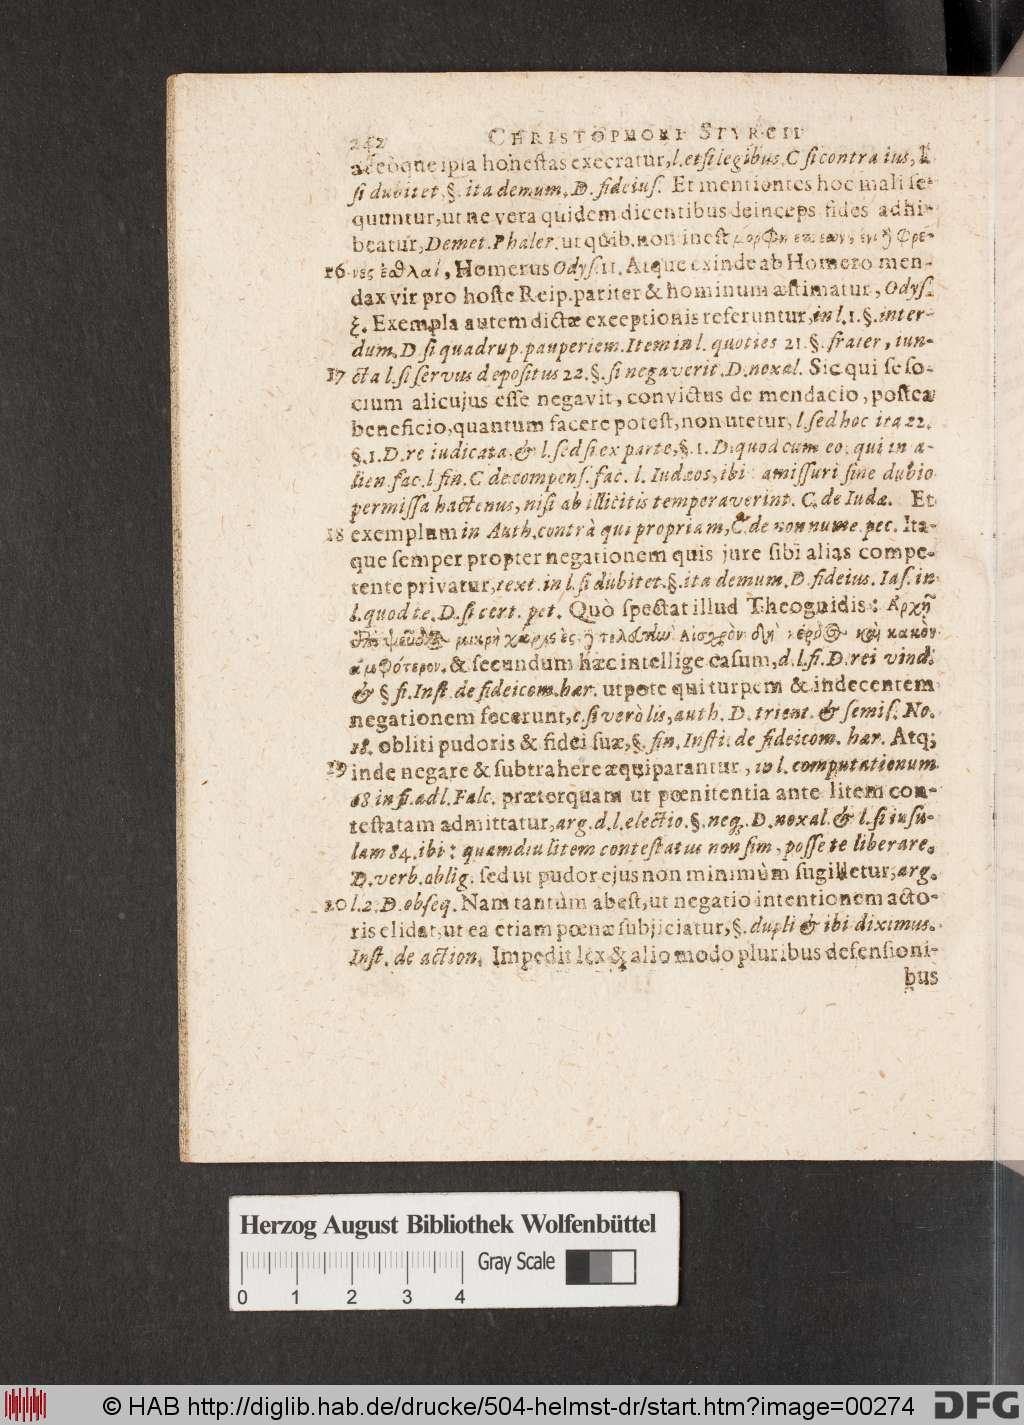 242 CHRISTOPHORI STVRCII
adeòque ipsa honestas execratur, l. etsi legibus. C si contra ius, l.
si dubitet. §. ita demum. D. fideius. Et mentientes hoc mali se-
quuntur, ut ne vera quidem dicentibus deinceps fides adhi-
beatur, Demet. Phaler. ut quib. non inest μορφὴ ἐπέων, ἔνι ἢ φρέ-
16 νες ἐσθλαὶ, Homerus Odyſ. 11. Atque exinde ab Homero men-
dax vir pro hoste Reip. pariter & hominum æstimatur, Odyſ.
ξ. Exempla autem dictæ exceptionis referuntur, in l. 1. §. inter-
dum. D. si quadrup. pauperiem. Item in l. quoties 21. §. frater, iun-
17 cta l. si servus depositus 22. §. si negaverit. D. noxal. Sic qui se so-
cium alicujus esse negavit, convictus de mendacio, postea
beneficio, quantum facere potest, non utetur, l. sed hoc ita 22.
§. 1. D. re iudicata, & l. sed si ex parte, §. 1. D. quod cum eo: qui in a-
lien. fac. l fin. C de compens. fac. l. Iudæos, ibi amissuri sine dubio
permissa hactenus, nisi ab illicitis temperaverint. C. de Iudæ. Et
18 exemplum in Auth. contrà qui propriam, C. de non nume. pec. Ita-
que semper propter negationem quis jure sibi alias compe-
tente privatur, text. in l. si dubitet. §. ita demum. D. fideius. Ias. in
l. quod te. D. si cert. pet. Quò spectat illud Theognidis: Ἀρχῆ
μικρὴ χάρις ἐς Αἰσχρὸν κέρδος καὶ κακὸν
ἀμφότερον. & secundum hæc intellige casum, d. l. fi. D. rei vind.
& § fi. Inst. de fideicom. hær. utpote qui turpem & indecentem
negationem fecerunt, c. si verò lis, auth. D. trient. & semis. No.
18. obliti pudoris & fidei suæ, §. fin. Insti. de fideicom. hær. Atq;
19 inde negare & subtrahere æquiparantur, in l. computationum
68 in fi. ad l. Falc. præterquam ut pœnitentia ante litem con-
testatam admittatur, arg. d. l. electio. §. neq. D. noxal. & l. si insu-
lam 84. ibi: quamdiu litem contestatus non sim, posse te liberare.
D. verb. oblig. sed ut pudor ejus non minimùm sugilletur, arg.
20 l. 2. D. obseq. Nam tantùm abest, ut negatio intentionem acto-
ris elidat, ut ea etiam pœnæ subjiciatur, §. dupli & ibi diximus.
Inst. de action. Impedit lex & alio modo pluribus defensioni-
bus
Herzog August Bibliothek Wolfenbüttel
Gray Scale
0 1 2 3 4
© HAB http://diglib.hab.de/drucke/504-helmst-dr/start.htm?image=00274
DFG